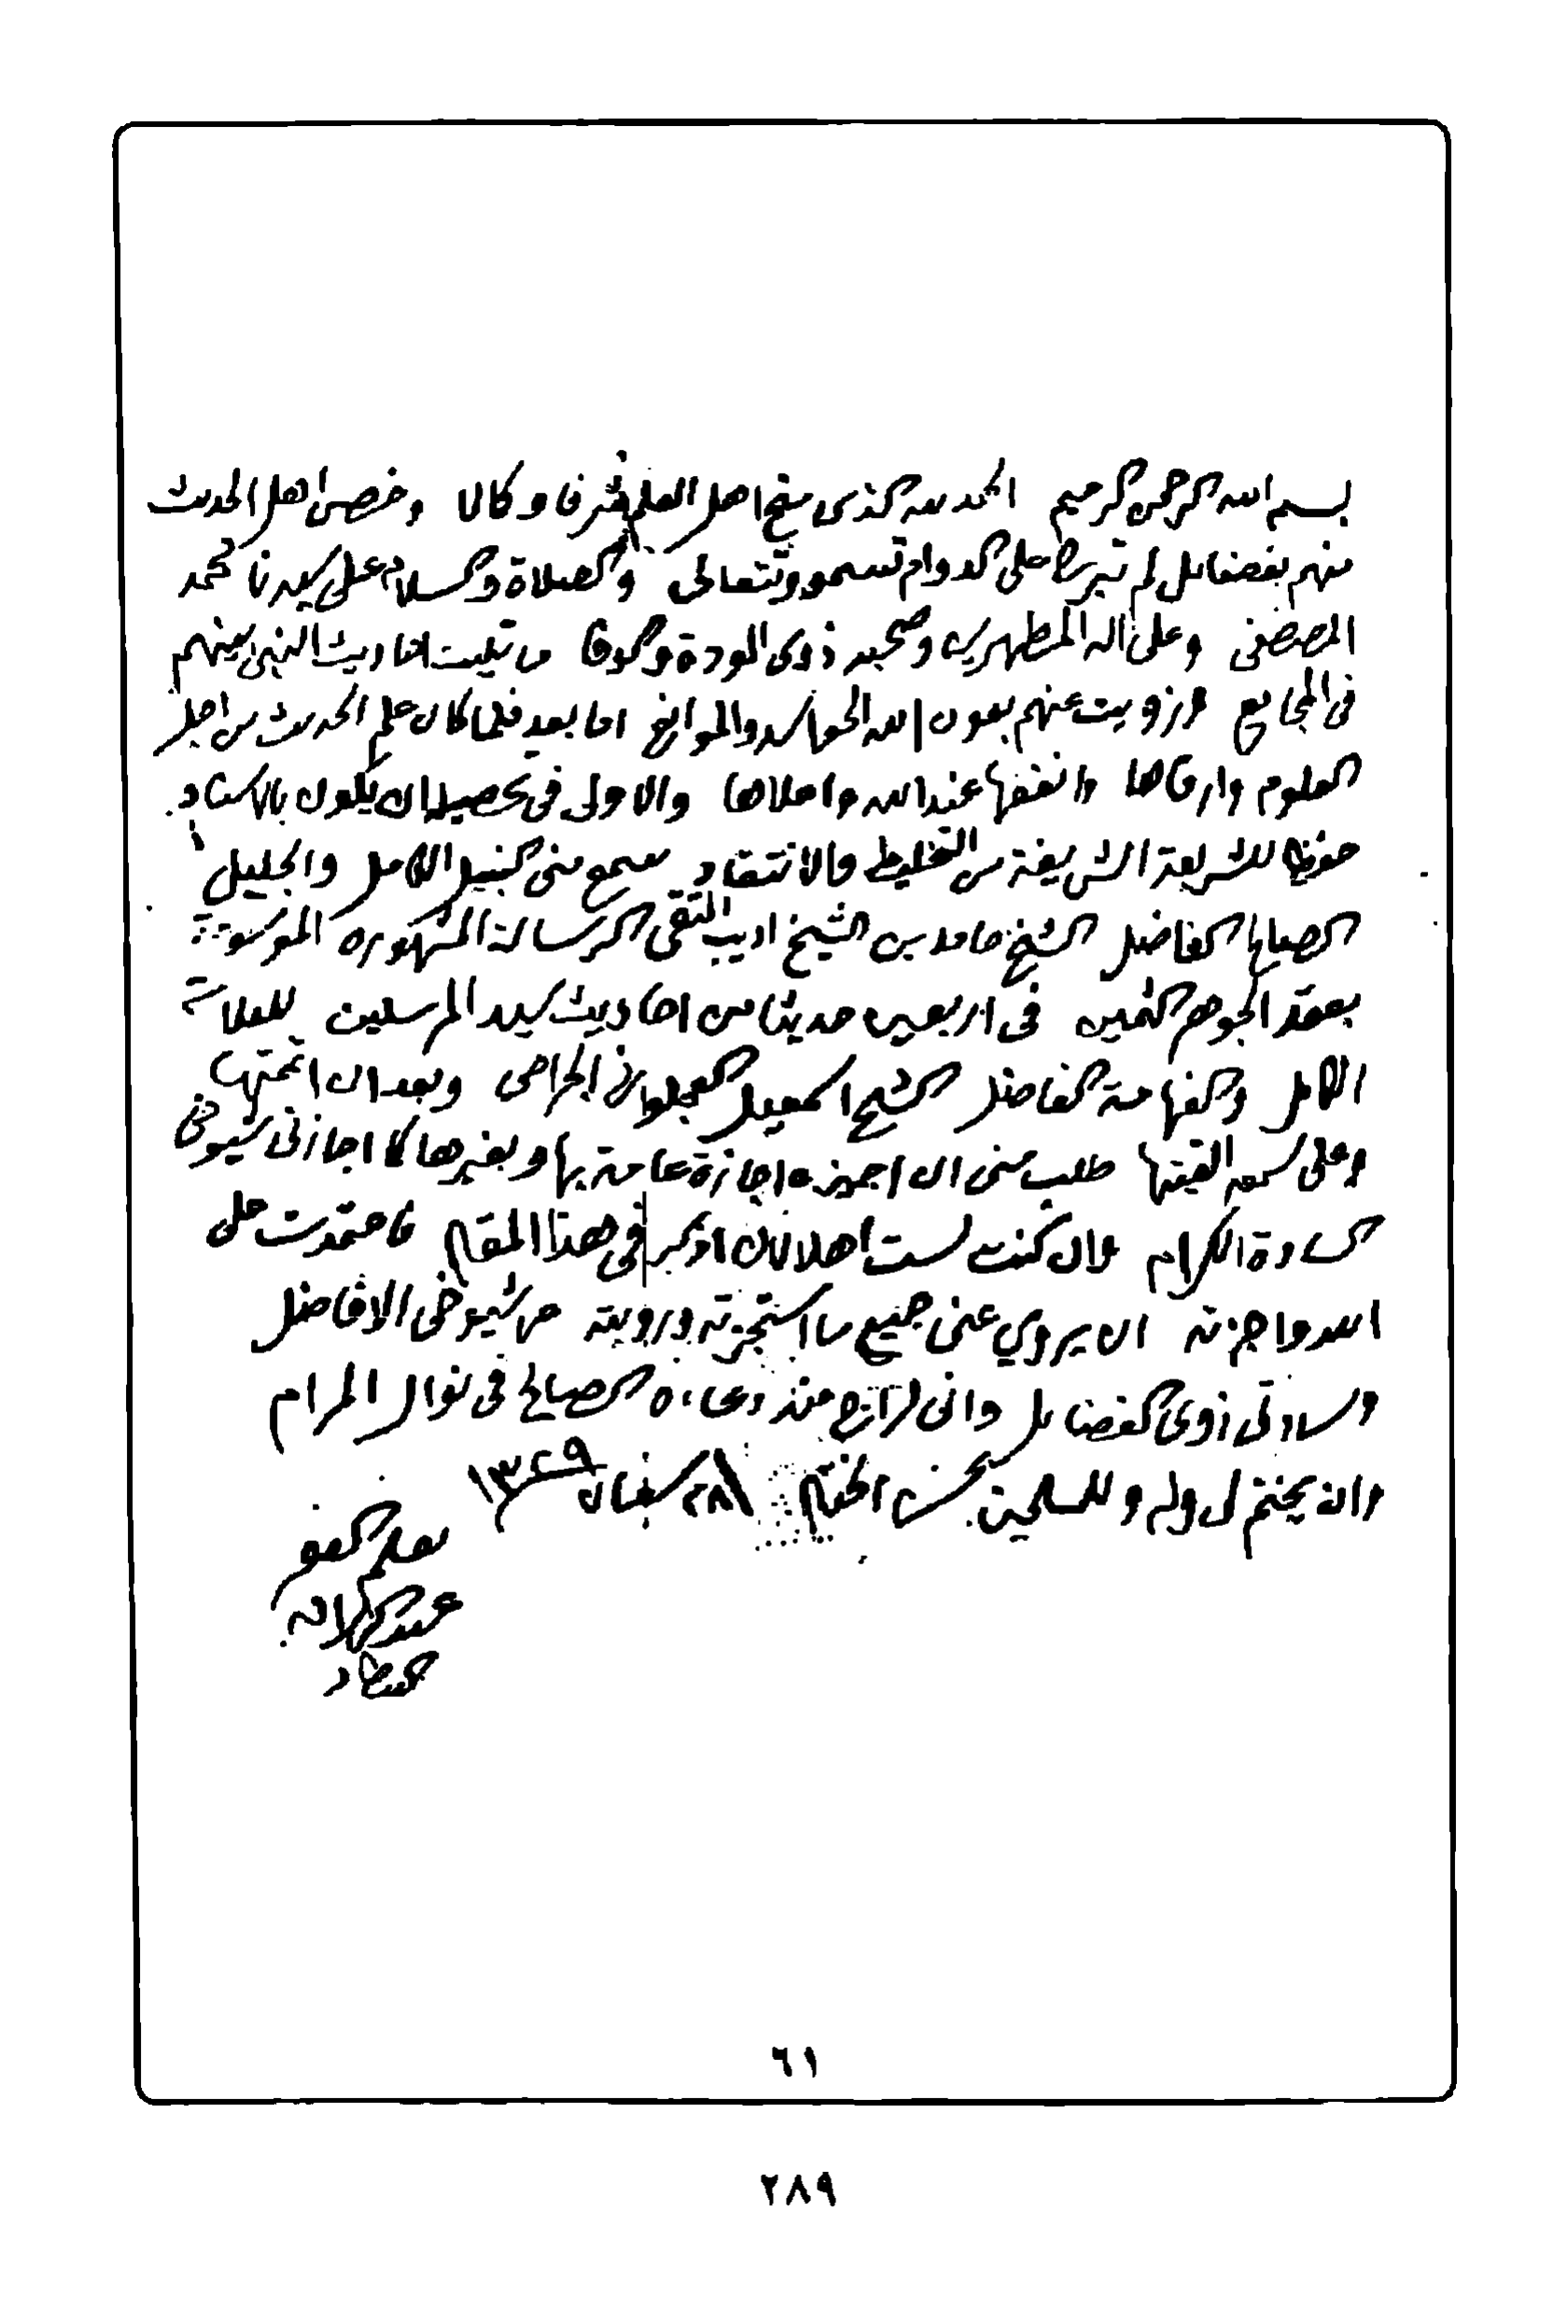 بسم الله الرحمن الرحيم الحمد لله الذى منح اهل العلم شرفا وكمالا وخص اهل الحديث
منهم بفضائل لم تبرح على الدوام تسمو وتتعالى والصلاة والسلام على سيدنا محمد
المصطفى وعلى اله المطهرين وصحبه ذوى المودة والوفا ما تليت احاديث النبى بينهم
فى المجامع ورويت عنهم بعون الله الحواسد والموانع اما بعد فلما كان علم الحديث من اجل
العلوم وارقاها وانفعها عند الله واعلاها والاولى فى تحصيله ان يكون بالاسناد
حفظا للشريعة الشريفة من التخليط والانتقاد سمع منى النبيل الكامل والجليل
الصالح الفاضل الشيخ حامد بن الشيخ اديب التقى الرسالة المشهورة الموسومة
بعقد الجوهر الثمين فى اربعين حديثا من احاديث سيد المرسلين للعلامة
الكامل والفهامة الفاضل الشيخ اسمعيل العجلونى الجراحى وبعد ان اتممتها
وعلى سمعه القيتها طلب منى ان اجيزه اجازة عامة بها وبغيرها كما اجازنى شيوخى
السادة الكرام وان كنت لست اهلا لان اذكر فى هذا المقام فاعتمدت على
الله واجزته ان يروي عنى جميع ما استجزته ورويته عن شيوخى الافاضل
وسادتى ذوى الفضائل وانى لراج منه دعاءه الصالح فى نوال المرام
وان يختم لى وله وللمسلمين بحسن الختام ٢٨ شعبان ١٣٤٩
عبد
٦١
٢٨٩